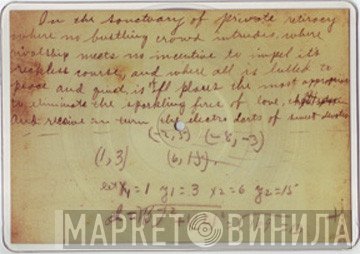 In the sanctuary of private retiracy
where no bustling crowd intrudes, where
rivalship meets no incentive to impel its
reckless course, and where all is lulled to
peace and quiet is of all places the most appropriate
to eliminate the sparkling fires of love,
and receive in turn the electro darts of sweet
(-2,5) (-8,-3)
(1,3) (6,15).
let x1=1 y1=3 x2=6 y2=15
МАРКЕТ ВИНИЛА